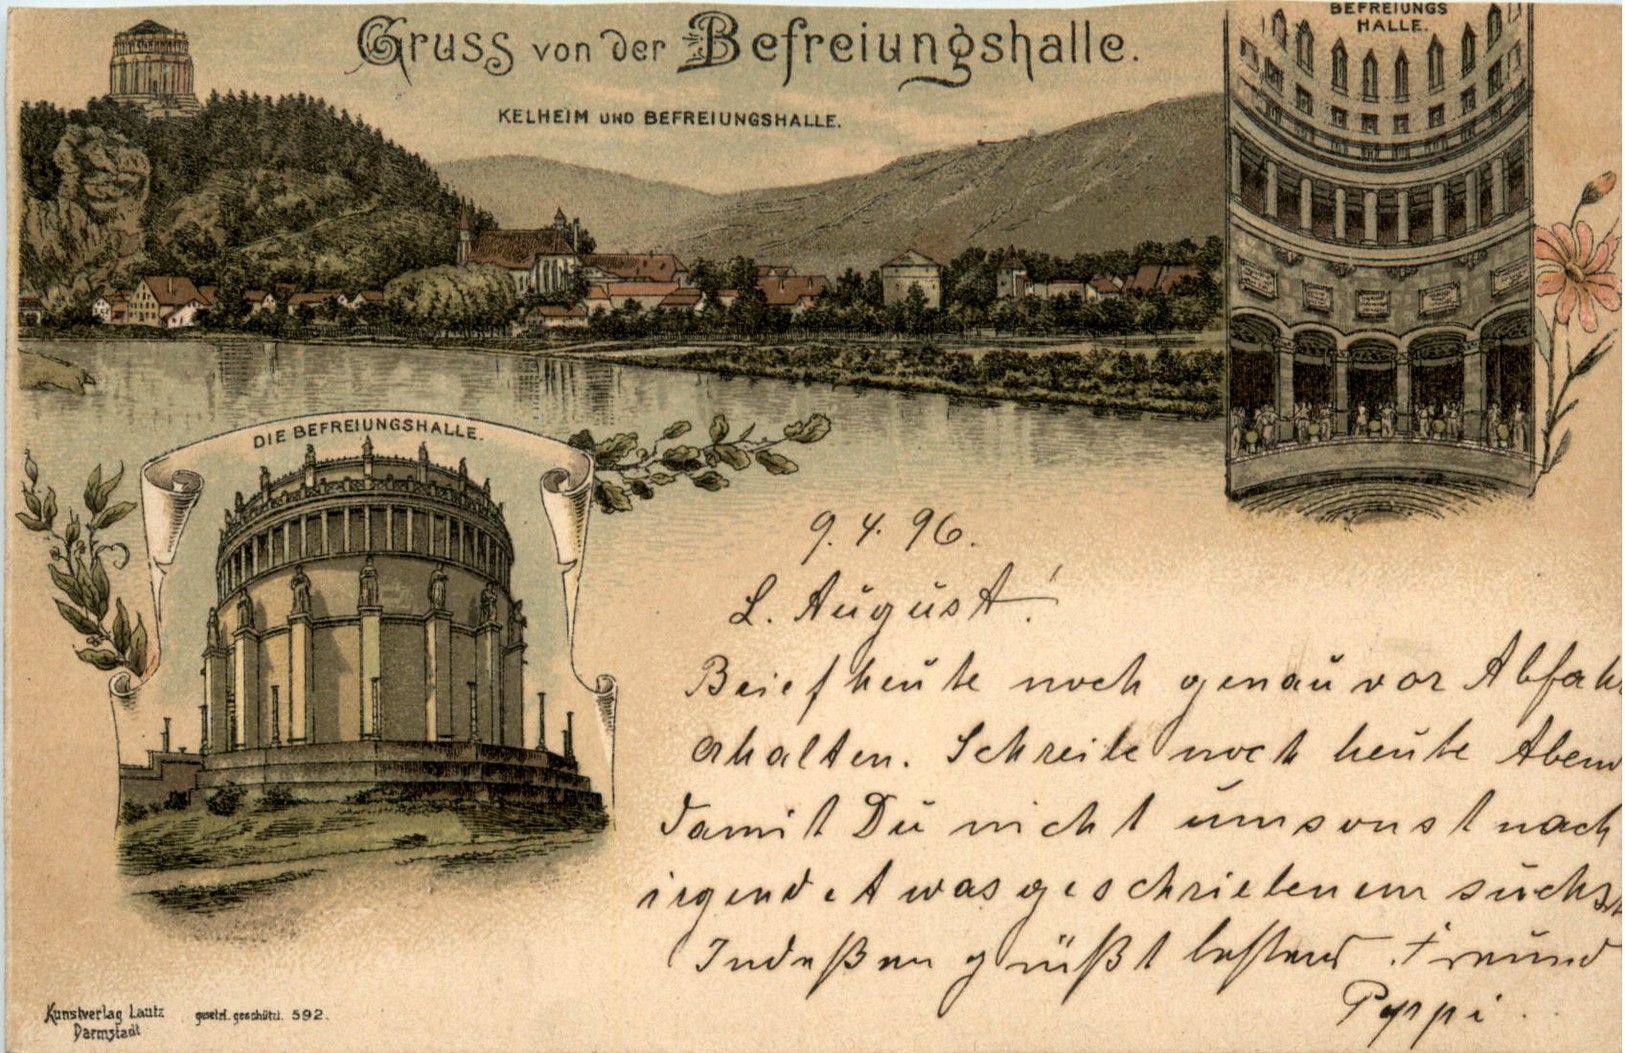 Gruss von der Befreiungshalle.
KELHEIM UND BEFREIUNGSHALLE.
BEFREIUNGS
HALLE.
DIE BEFREIUNGSHALLE.
9. 4. 96.
L. August!
Brief heute noch genau vor Abfah
erhalten. Schreibe noch heute Aben
damit Du nicht umsonst nach
irgend etwas geschriebenem suchst
Indeßen grüßt bestens Freund
Peppi.
Kunstverlag Lautz
Darmstadt
gesetzl. geschützt. 592.